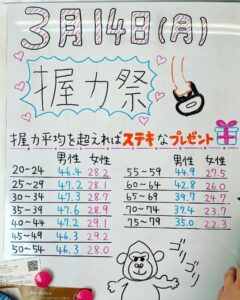 3月14日(月)
握力祭
握力平均を超えればステキなプレゼント
男性 女性
20~24 46.4 28.2
25~29 47.2 28.1
30~34 47.3 28.7
35~39 47.6 28.9
40~44 47.2 29.1
45~49 46.3 29.2
50~54 46.3 28.0
男性 女性
55~59 44.9 27.5
60~64 42.8 26.0
65~69 39.7 24.7
70~74 37.4 23.7
75~79 35.0 22.3
ゴリゴリ